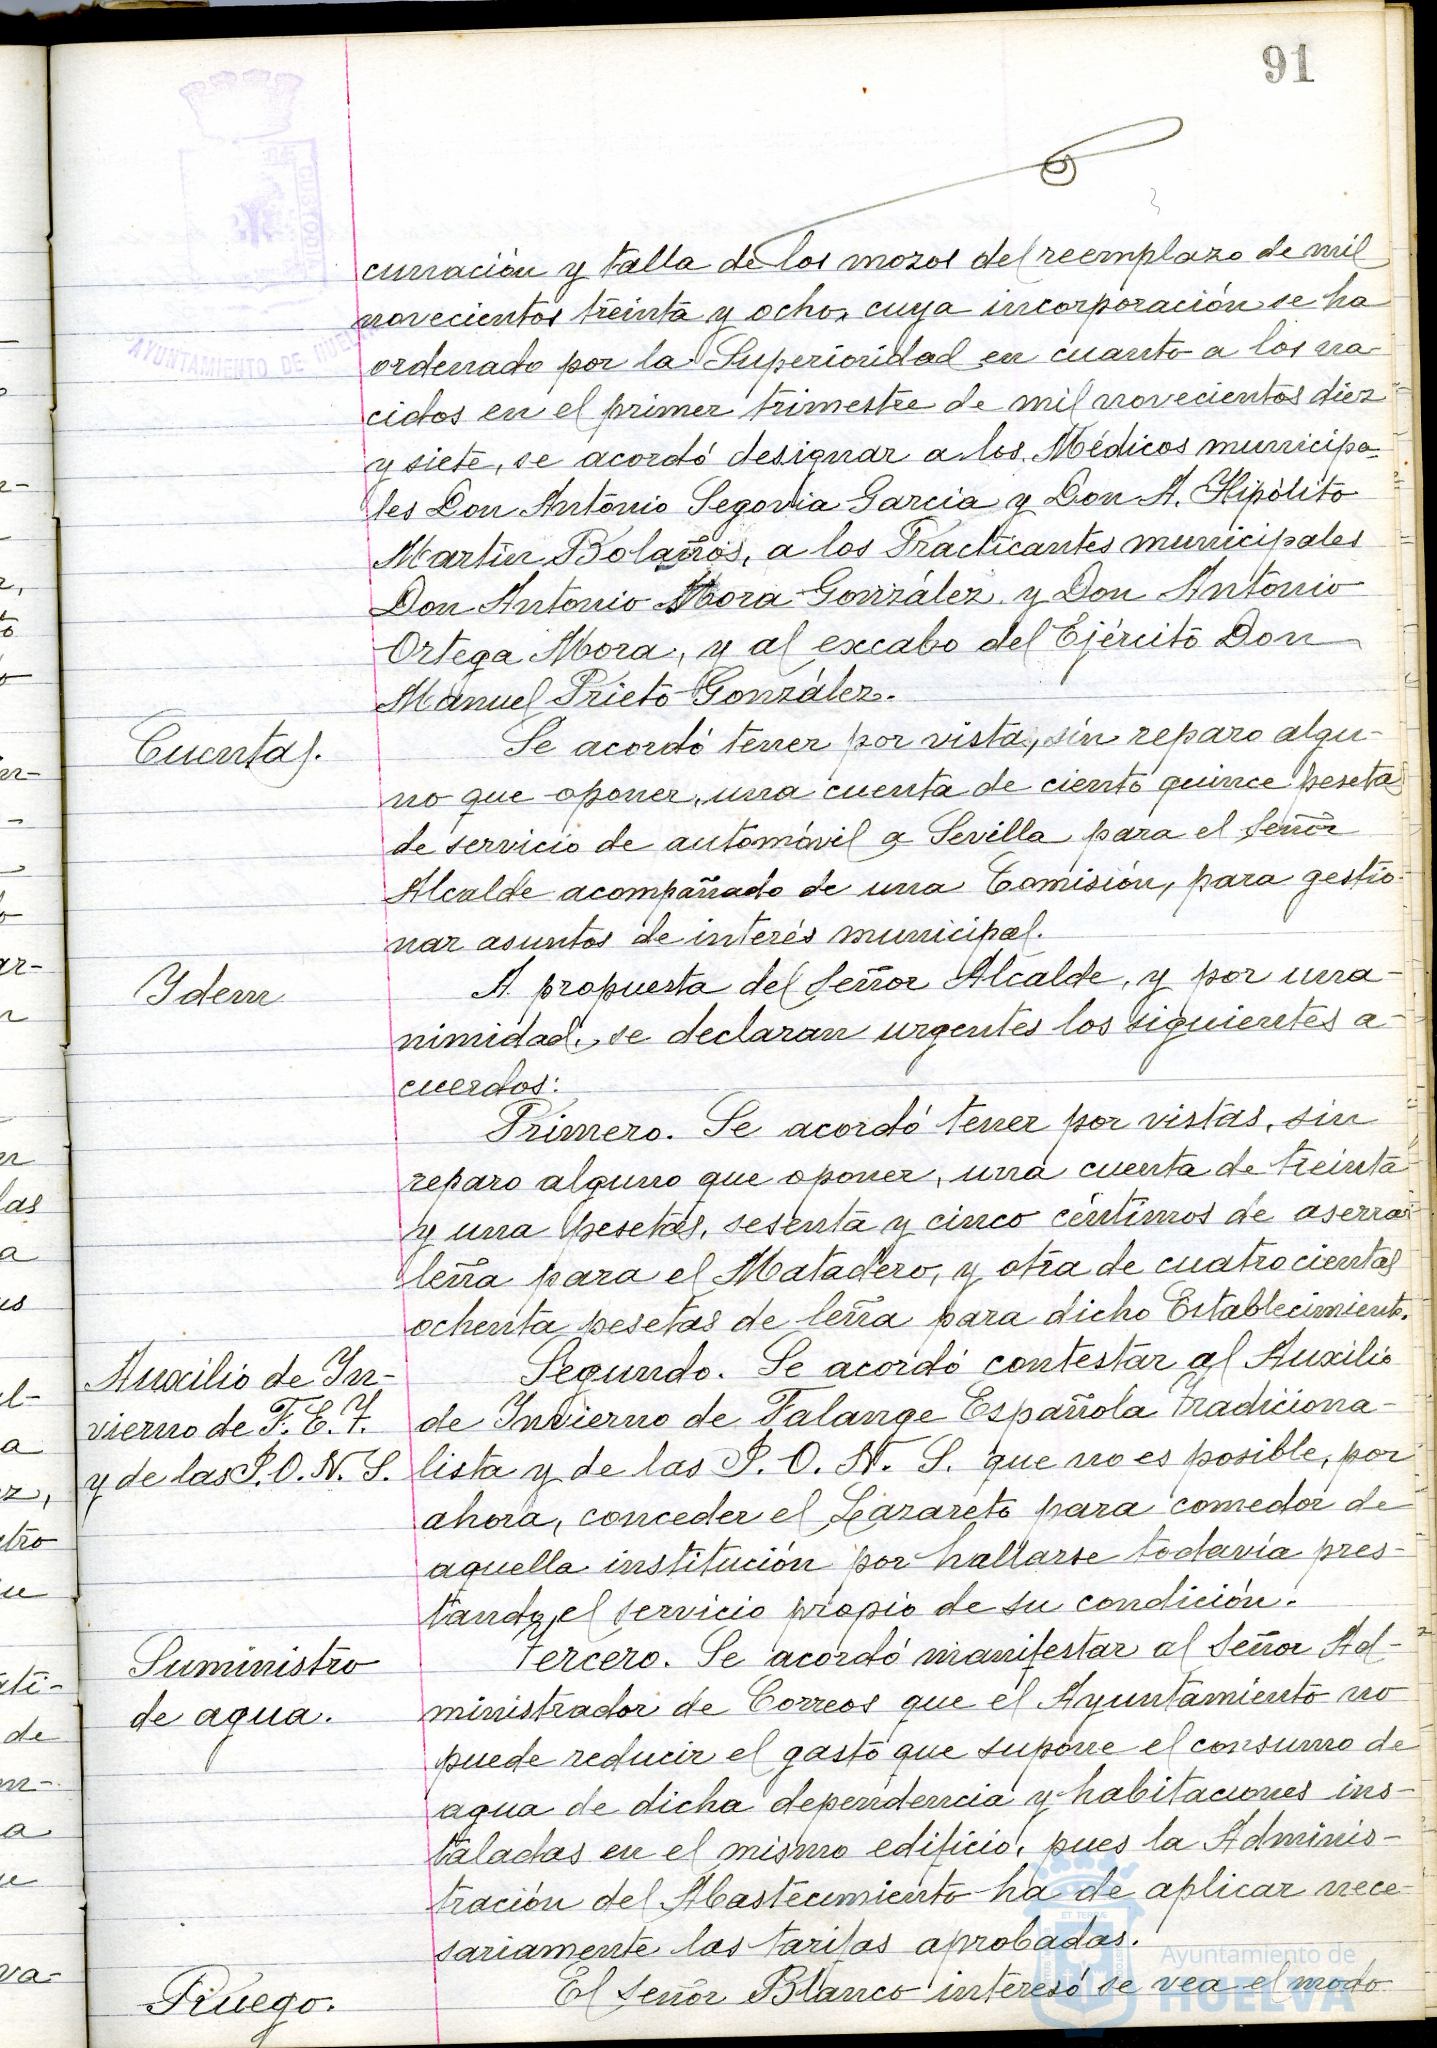 91
curación y talla de los mozos del reemplazo de mil
novecientos treinta y ocho, cuya incorporación se ha
ordenado por la Superioridad en cuanto a los na-
cidos en el primer trimestre de mil novecientos diez
y siete, se acordó designar a los Médicos municipa-
les Don Antonio Segovia García y Don A. Hipólito
Martín Bolaños, a los Practicantes municipales
Don Antonio Mora González y Don Antonio
Ortega Mora, y al excabo del Ejército Don
Manuel Prieto González.
Cuentas.
Se acordó tener por vista, sin reparo algu-
no que oponer, una cuenta de ciento quince pesetas
de servicio de automóvil a Sevilla para el Señor
Alcalde acompañado de una Comisión, para gestio-
nar asuntos de interés municipal.
Ydem
A propuesta del Señor Alcalde, y por una-
nimidad, se declaran urgentes los siguientes a-
cuerdos:
Primero. Se acordó tener por vistas, sin
reparo alguno que oponer, una cuenta de treinta
y una pesetas, sesenta y cinco céntimos de aserrar
leña para el Matadero, y otra de cuatrocientas
ochenta pesetas de leña para dicho Establecimiento.
Auxilio de In-
vierno de F. E. T.
y de las J. O. N. S.
Segundo. Se acordó contestar al Auxilio
de Invierno de Falange Española Tradiciona-
lista y de las J. O. N. S. que no es posible, por
ahora, conceder el Lazareto para comedor de
aquella institución por hallarse todavía pres-
tando el servicio propio de su condición.
Suministro
de agua.
Tercero. Se acordó manifestar al Señor Ad-
ministrador de Correos que el Ayuntamiento no
puede reducir el gasto que supone el consumo de
agua de dicha dependencia y habitaciones ins-
taladas en el mismo edificio, pues la Adminis-
tración del Abastecimiento ha de aplicar nece-
sariamente las tarifas aprobadas.
Ruego.
El Señor Blanco interesó se vea el modo
AYUNTAMIENTO DE HUELVA
Ayuntamiento de
HUELVA